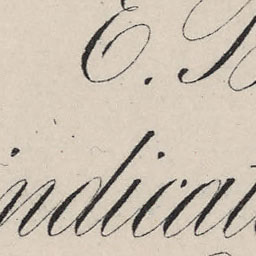 E.
indicat